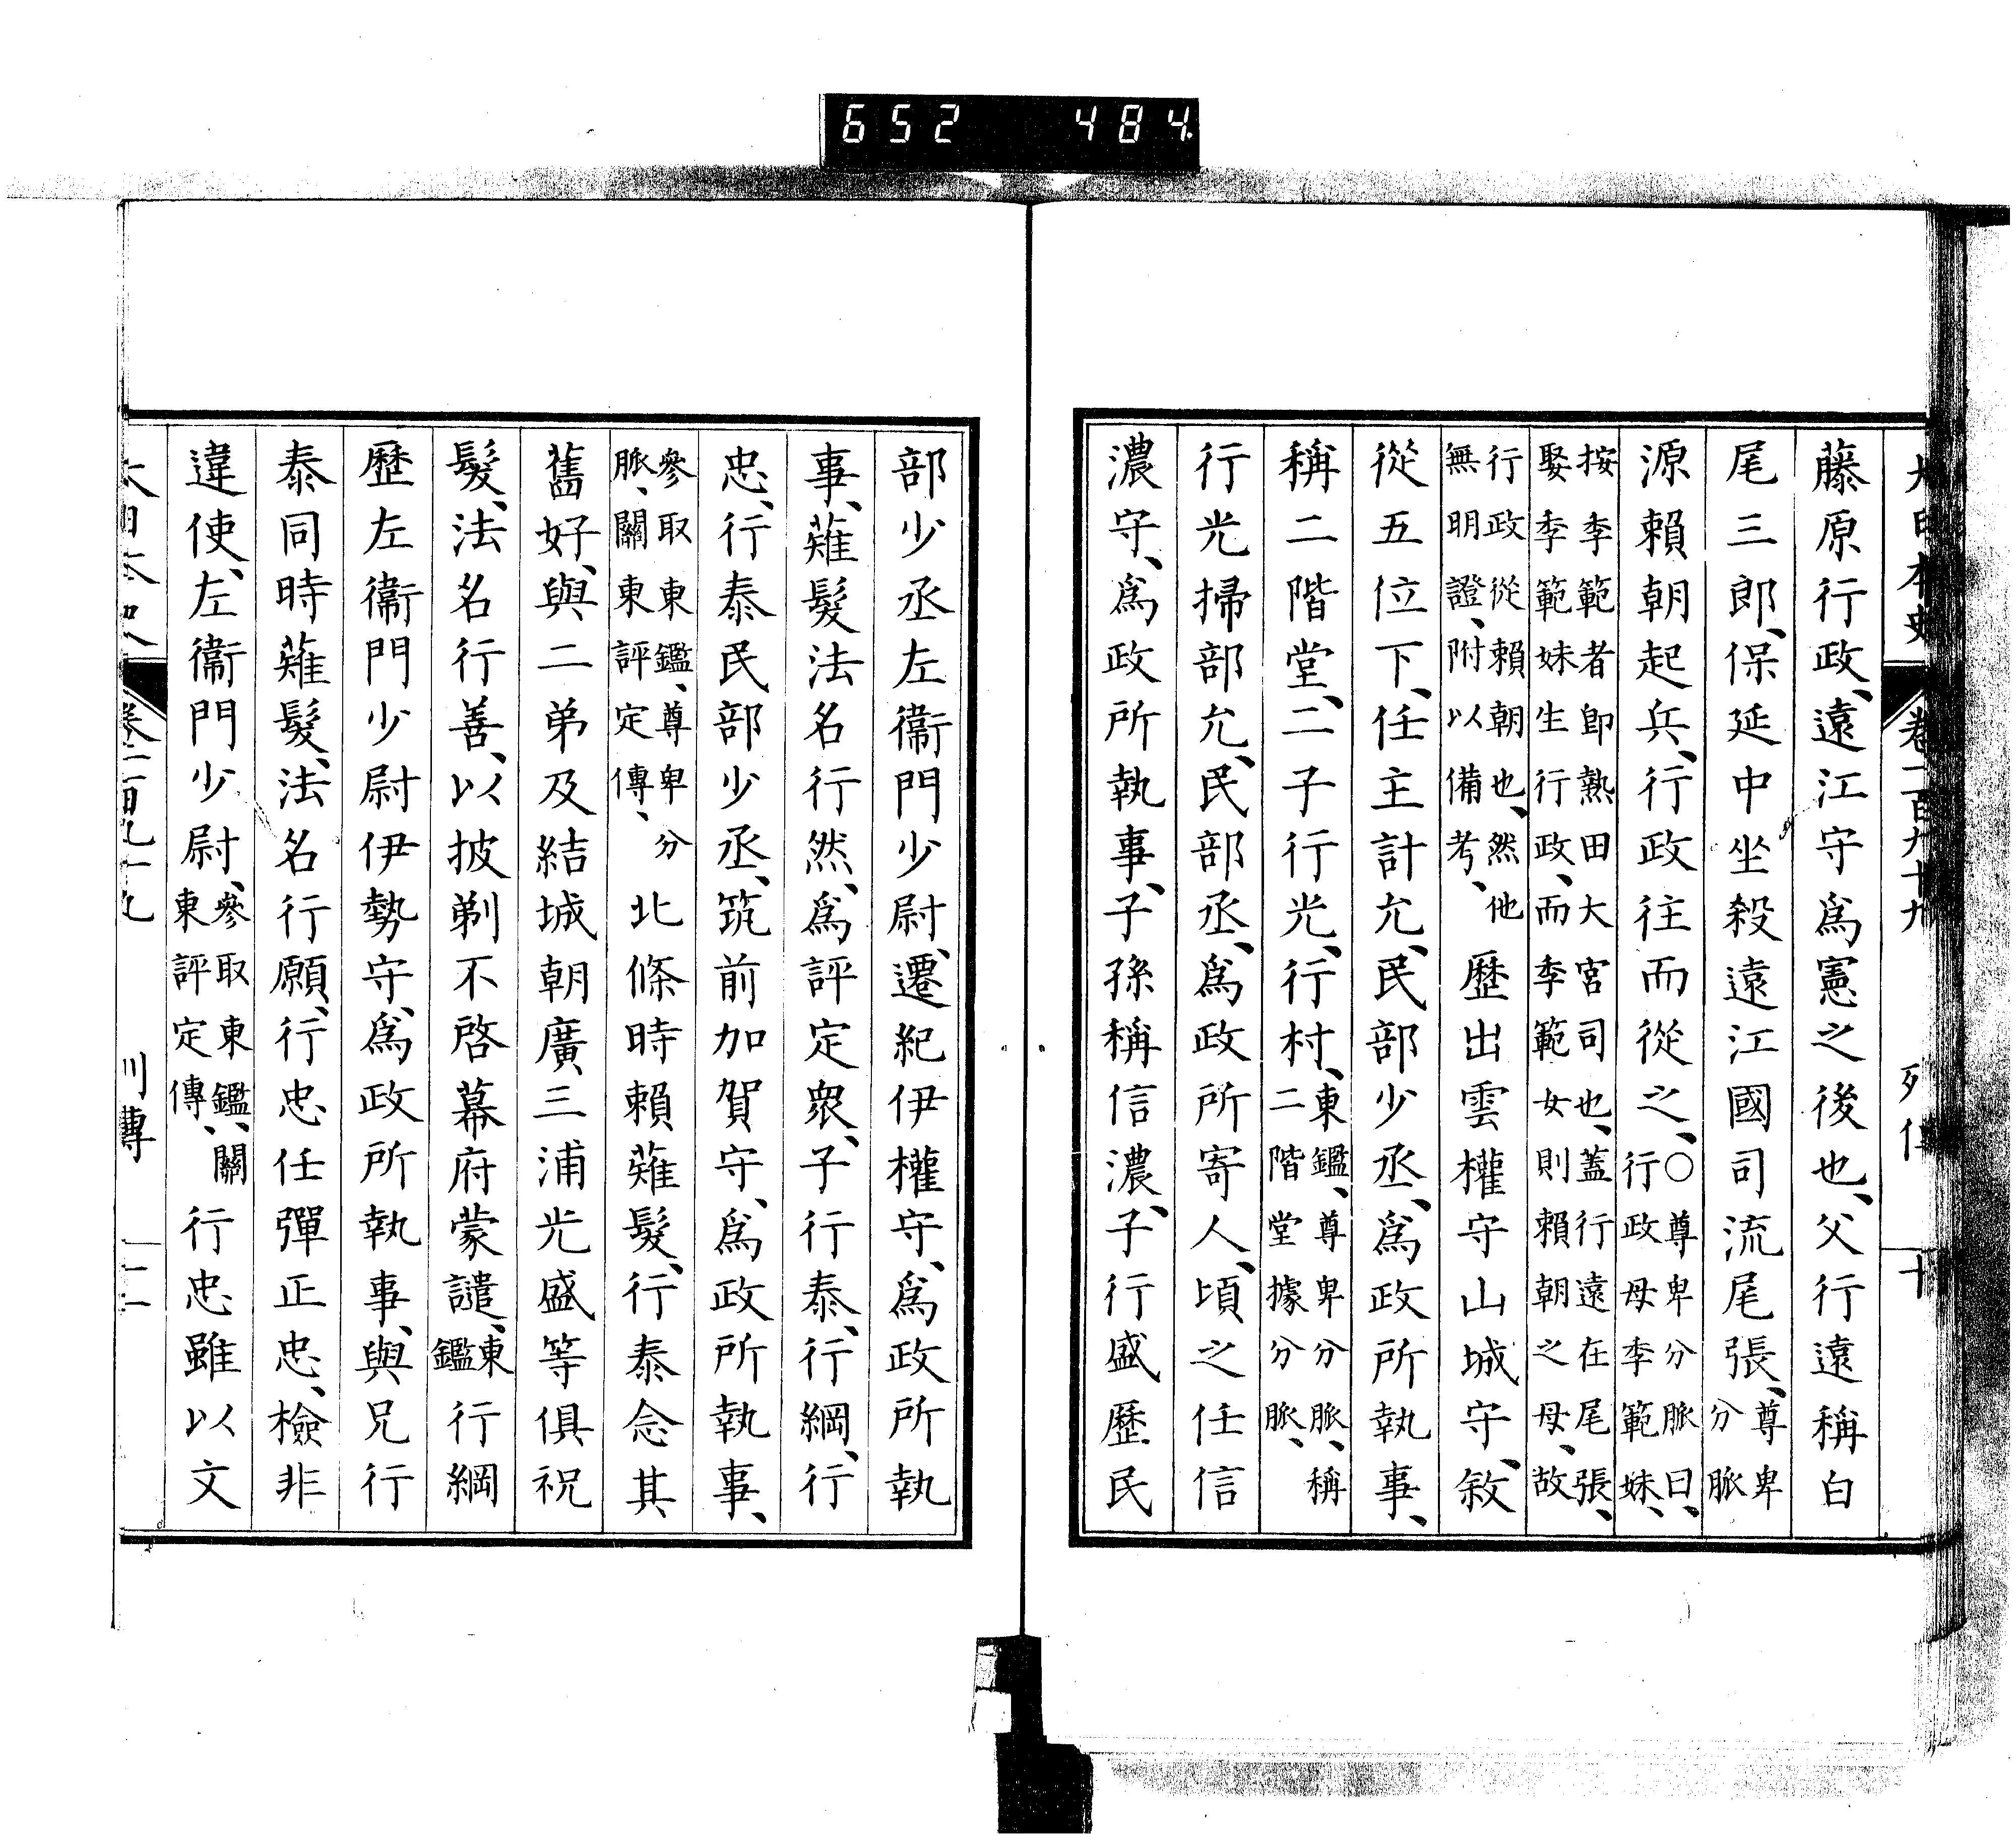 652 484
大日本史 卷一百九十九 列傳 十
藤原行政、遠江守爲憲之後也、父行遠稱白
尾三郎、保延中坐殺遠江國司流尾張、尊卑分脈
源賴朝起兵、行政往而從之、○尊卑分脈曰、行政母季範妹、
按季範者卽熱田大宮司也、蓋行遠在尾張、娶季範妹生行政、而季範女則賴朝之母、故
行政從賴朝也、然他無明證、附以備考、歷出雲權守山城守、敘
從五位下、任主計允、民部少丞、爲政所執事、
稱二階堂、二子行光、行村、東鑑、尊卑分脈、稱二階堂據分脈、
行光掃部允、民部丞、爲政所寄人、頃之任信
濃守、爲政所執事、子孫稱信濃、子行盛歷民
部少丞左衞門少尉、遷紀伊權守、爲政所執
事、薙髮法名行然、爲評定衆、子行泰、行綱、行
忠、行泰民部少丞、筑前加賀守、爲政所執事、
參取東鑑、尊卑分脈、關東評定傳、北條時賴薙髮、行泰念其
舊好、與二弟及結城朝廣三浦光盛等俱祝
髮、法名行善、以披剃不啓幕府蒙譴、東鑑行綱
歷左衞門少尉伊勢守、爲政所執事、與兄行
泰同時薙髮、法名行願、行忠任彈正忠、檢非
違使、左衞門少尉、參取東鑑、關東評定傳、行忠雖以文
大日本史 卷一百九十九 列傳 十一